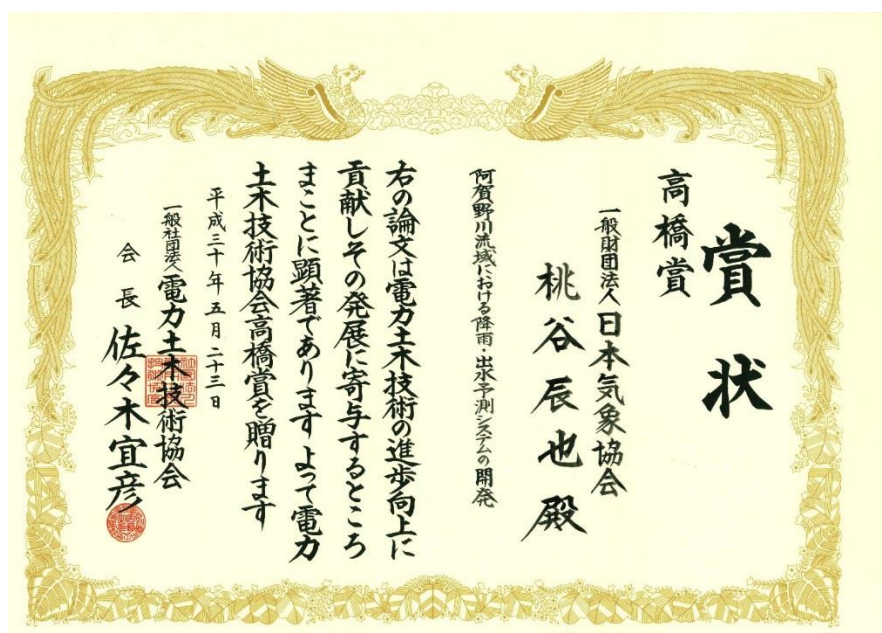 賞状
高橋賞
一般財団法人日本気象協会
桃谷辰也殿
阿賀野川流域における降雨・出水予測システムの開発
右の論文は電力土木技術の進歩向上に
貢献しその発展に寄与するところ
まことに顕著でありますよって電力
土木技術協会高橋賞を贈ります
平成三十年五月二十三日
一般社団法人電力土木技術協会
会長佐々木宜彦